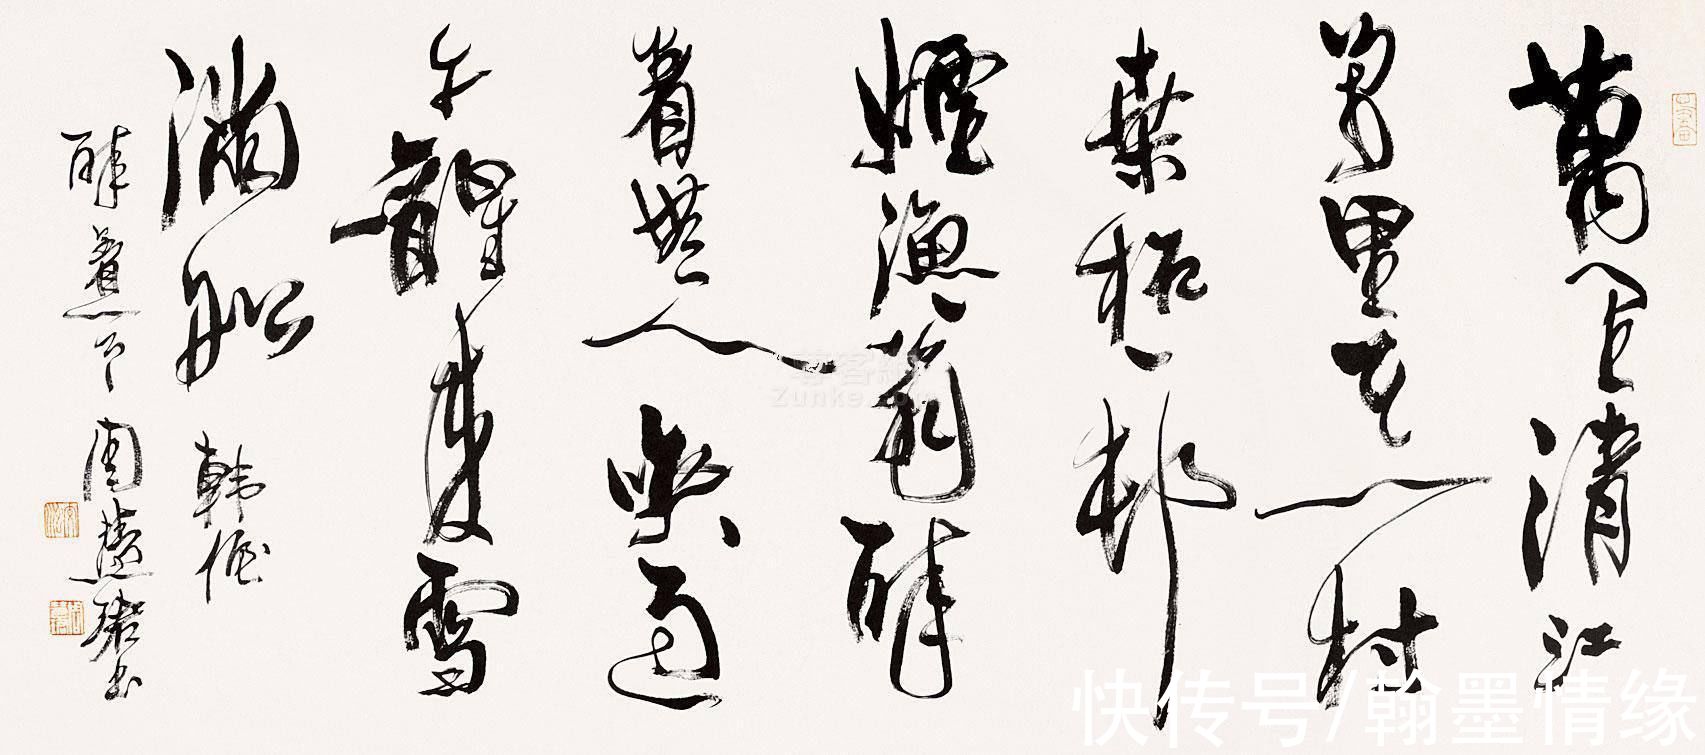 萬里清江
萬里天一村
桑柘一村
煙漁翁醉
着無人喚過
午醒來雪
滿船 韓偓
醉着 周慧珺书
Zunke.com
快传号/翰墨情缘